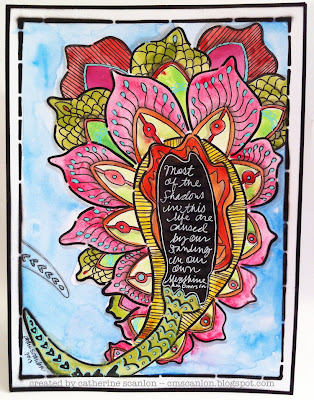 Most
of the
shadows
in this
life are
caused
by our
standing
in our
own
sunshine
Emerson
2013
created by catherine scanlon -- cmscanlon.blogspot.com